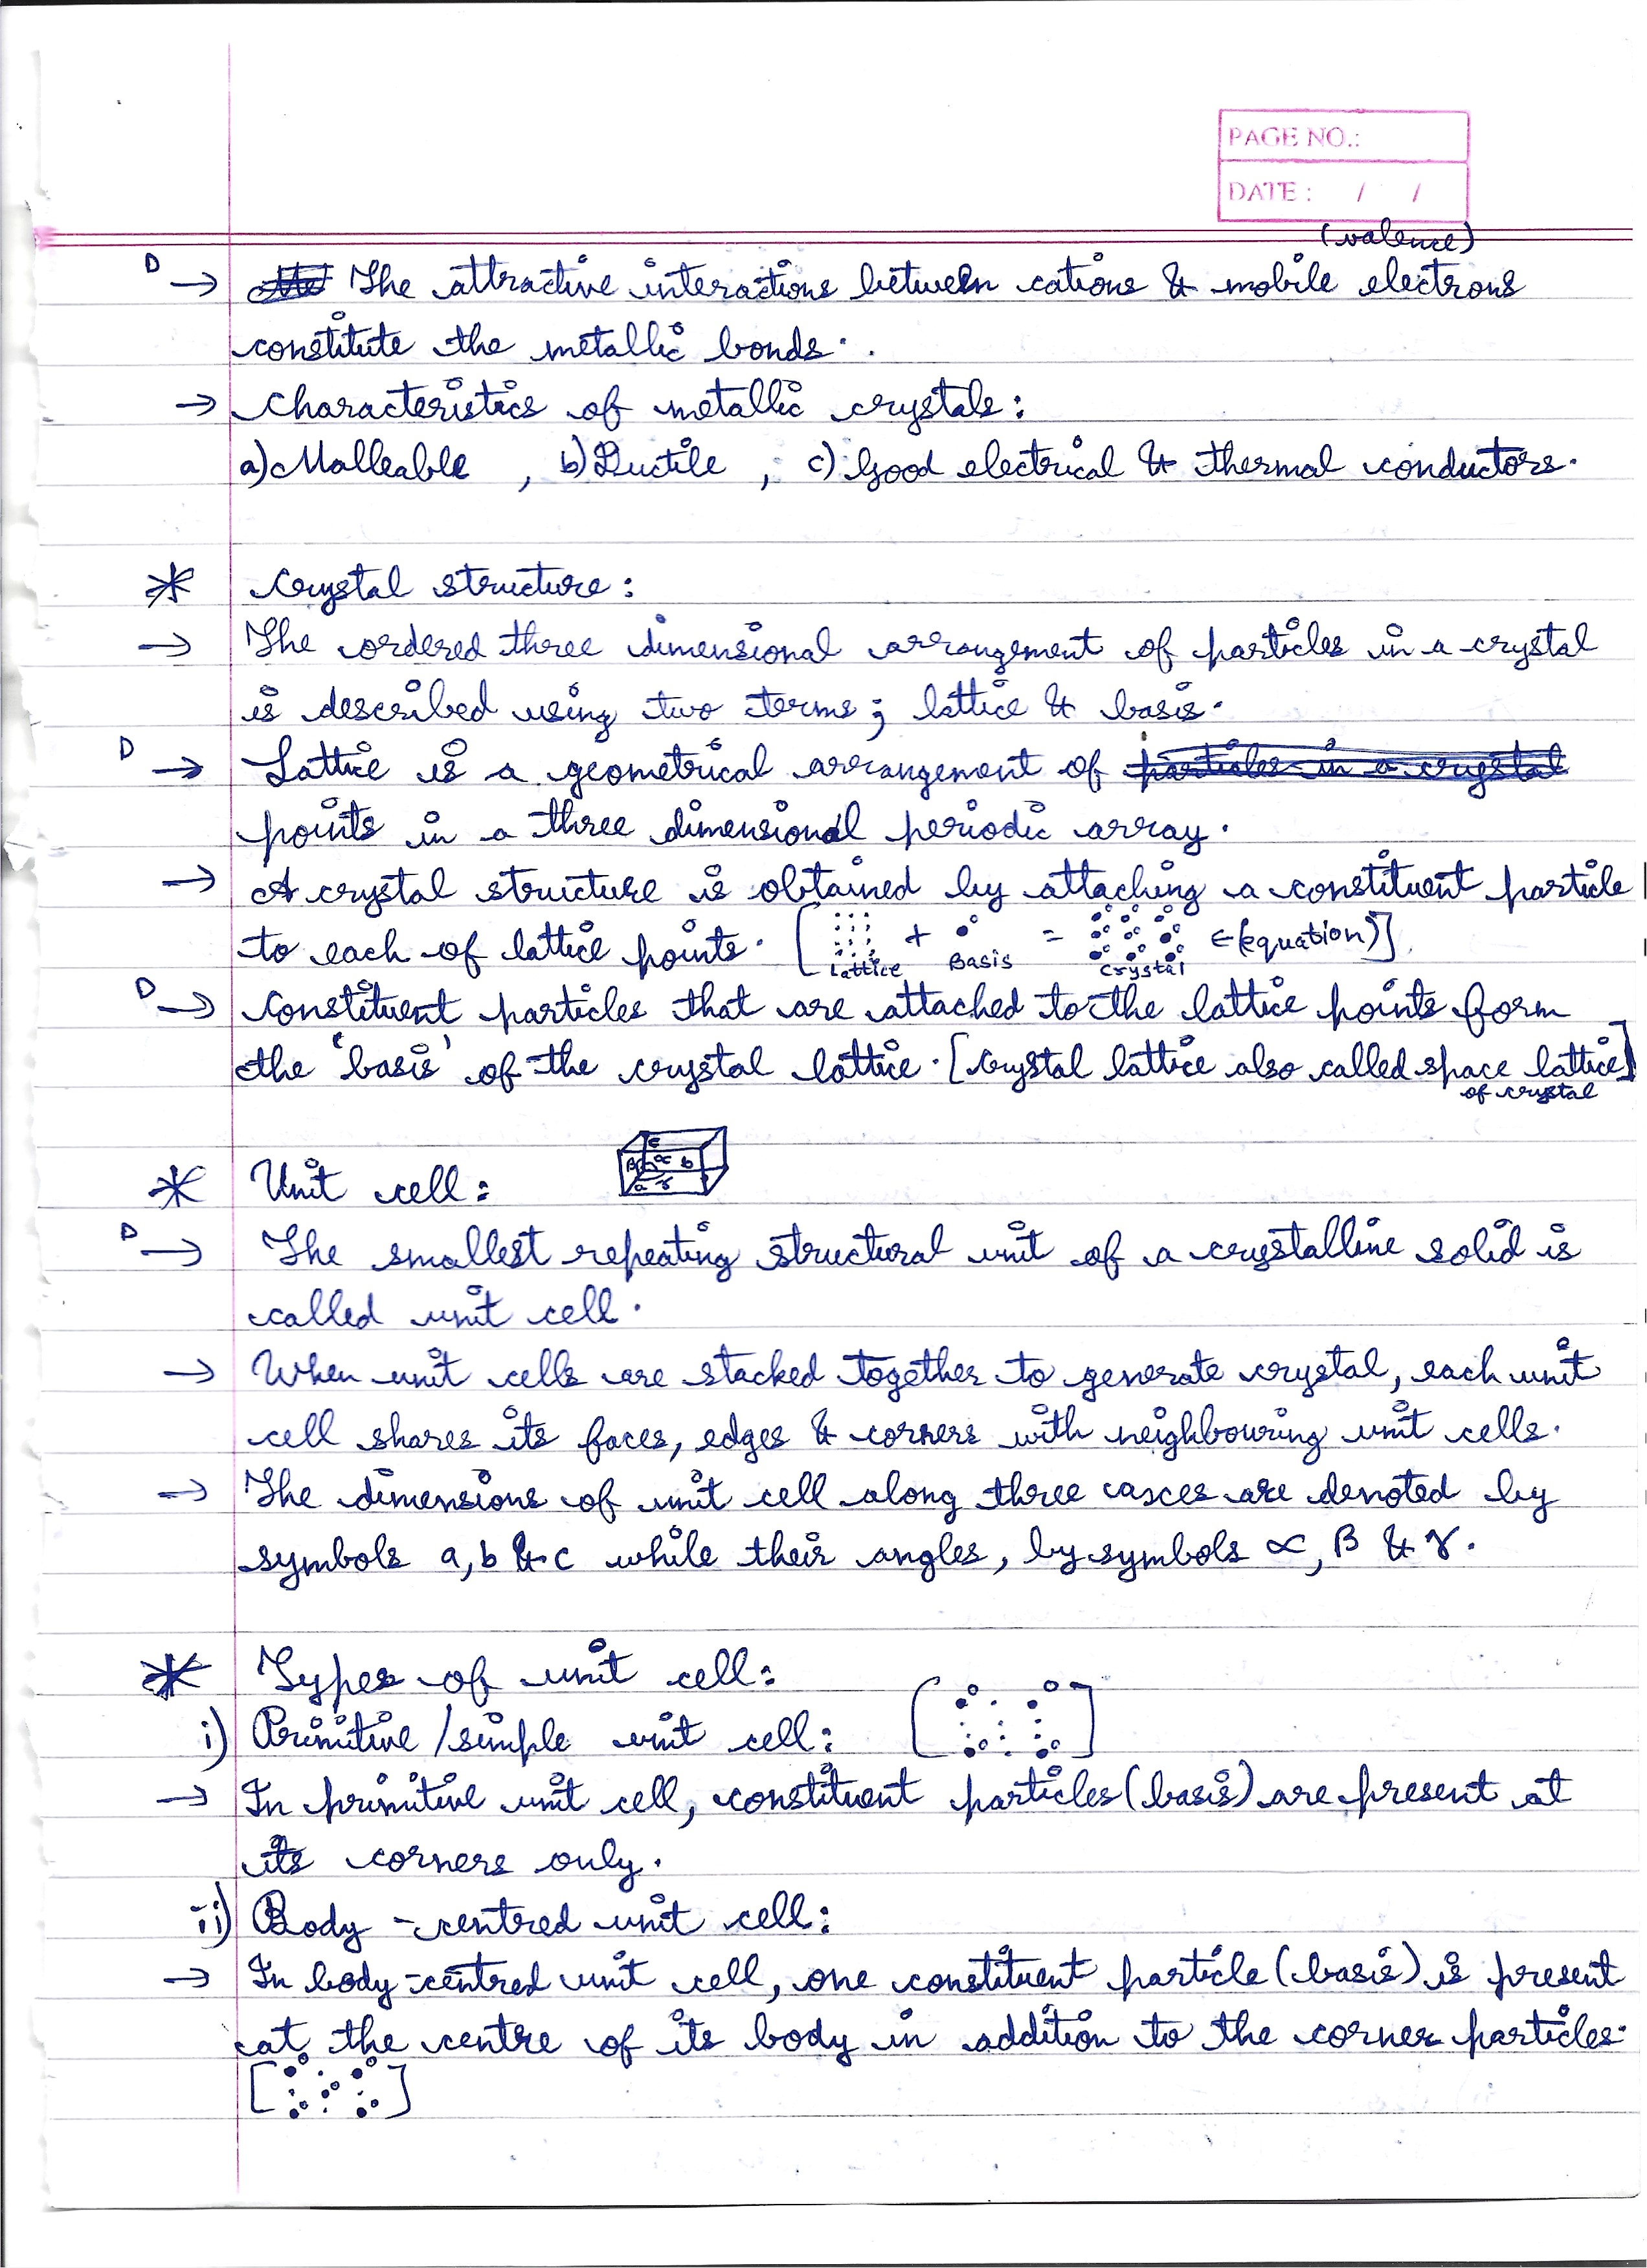 PAGE NO.:
DATE : / /
(valence)
D → The attractive interactions between cations & mobile electrons
constitute the metallic bonds.
→ Characteristics of metallic crystals:
a) Malleable , b) Ductile , c) Good electrical & thermal conductors.
* Crystal structure:
→ The ordered three dimensional arrangement of particles in a crystal
is described using two terms; lattice & basis.
D → Lattice is a geometrical arrangement of particles in a crystal
points in a three dimensional periodic array.
→ A crystal structure is obtained by attaching a constituent particle
to each of lattice points. [ + = ← (Equation)]
Lattice Basis Crystal
D → Constituent particles that are attached to the lattice points form
the 'basis' of the crystal lattice. [Crystal lattice also called space lattice]
of crystal
* Unit cell:
c
β α b
a γ
D → The smallest repeating structural unit of a crystalline solid is
called unit cell.
→ When unit cells are stacked together to generate crystal, each unit
cell shares its faces, edges & corners with neighbouring unit cells.
→ The dimensions of unit cell along three axces are denoted by
symbols a, b & c while their angles, by symbols ∝, β & γ.
* Types of unit cell:
i) Primitive / simple unit cell:
→ In primitive unit cell, constituent particles (basis) are present at
its corners only.
ii) Body - centred unit cell:
→ In body-centred unit cell, one constituent particle (basis) is present
at the centre of its body in addition to the corner particles.